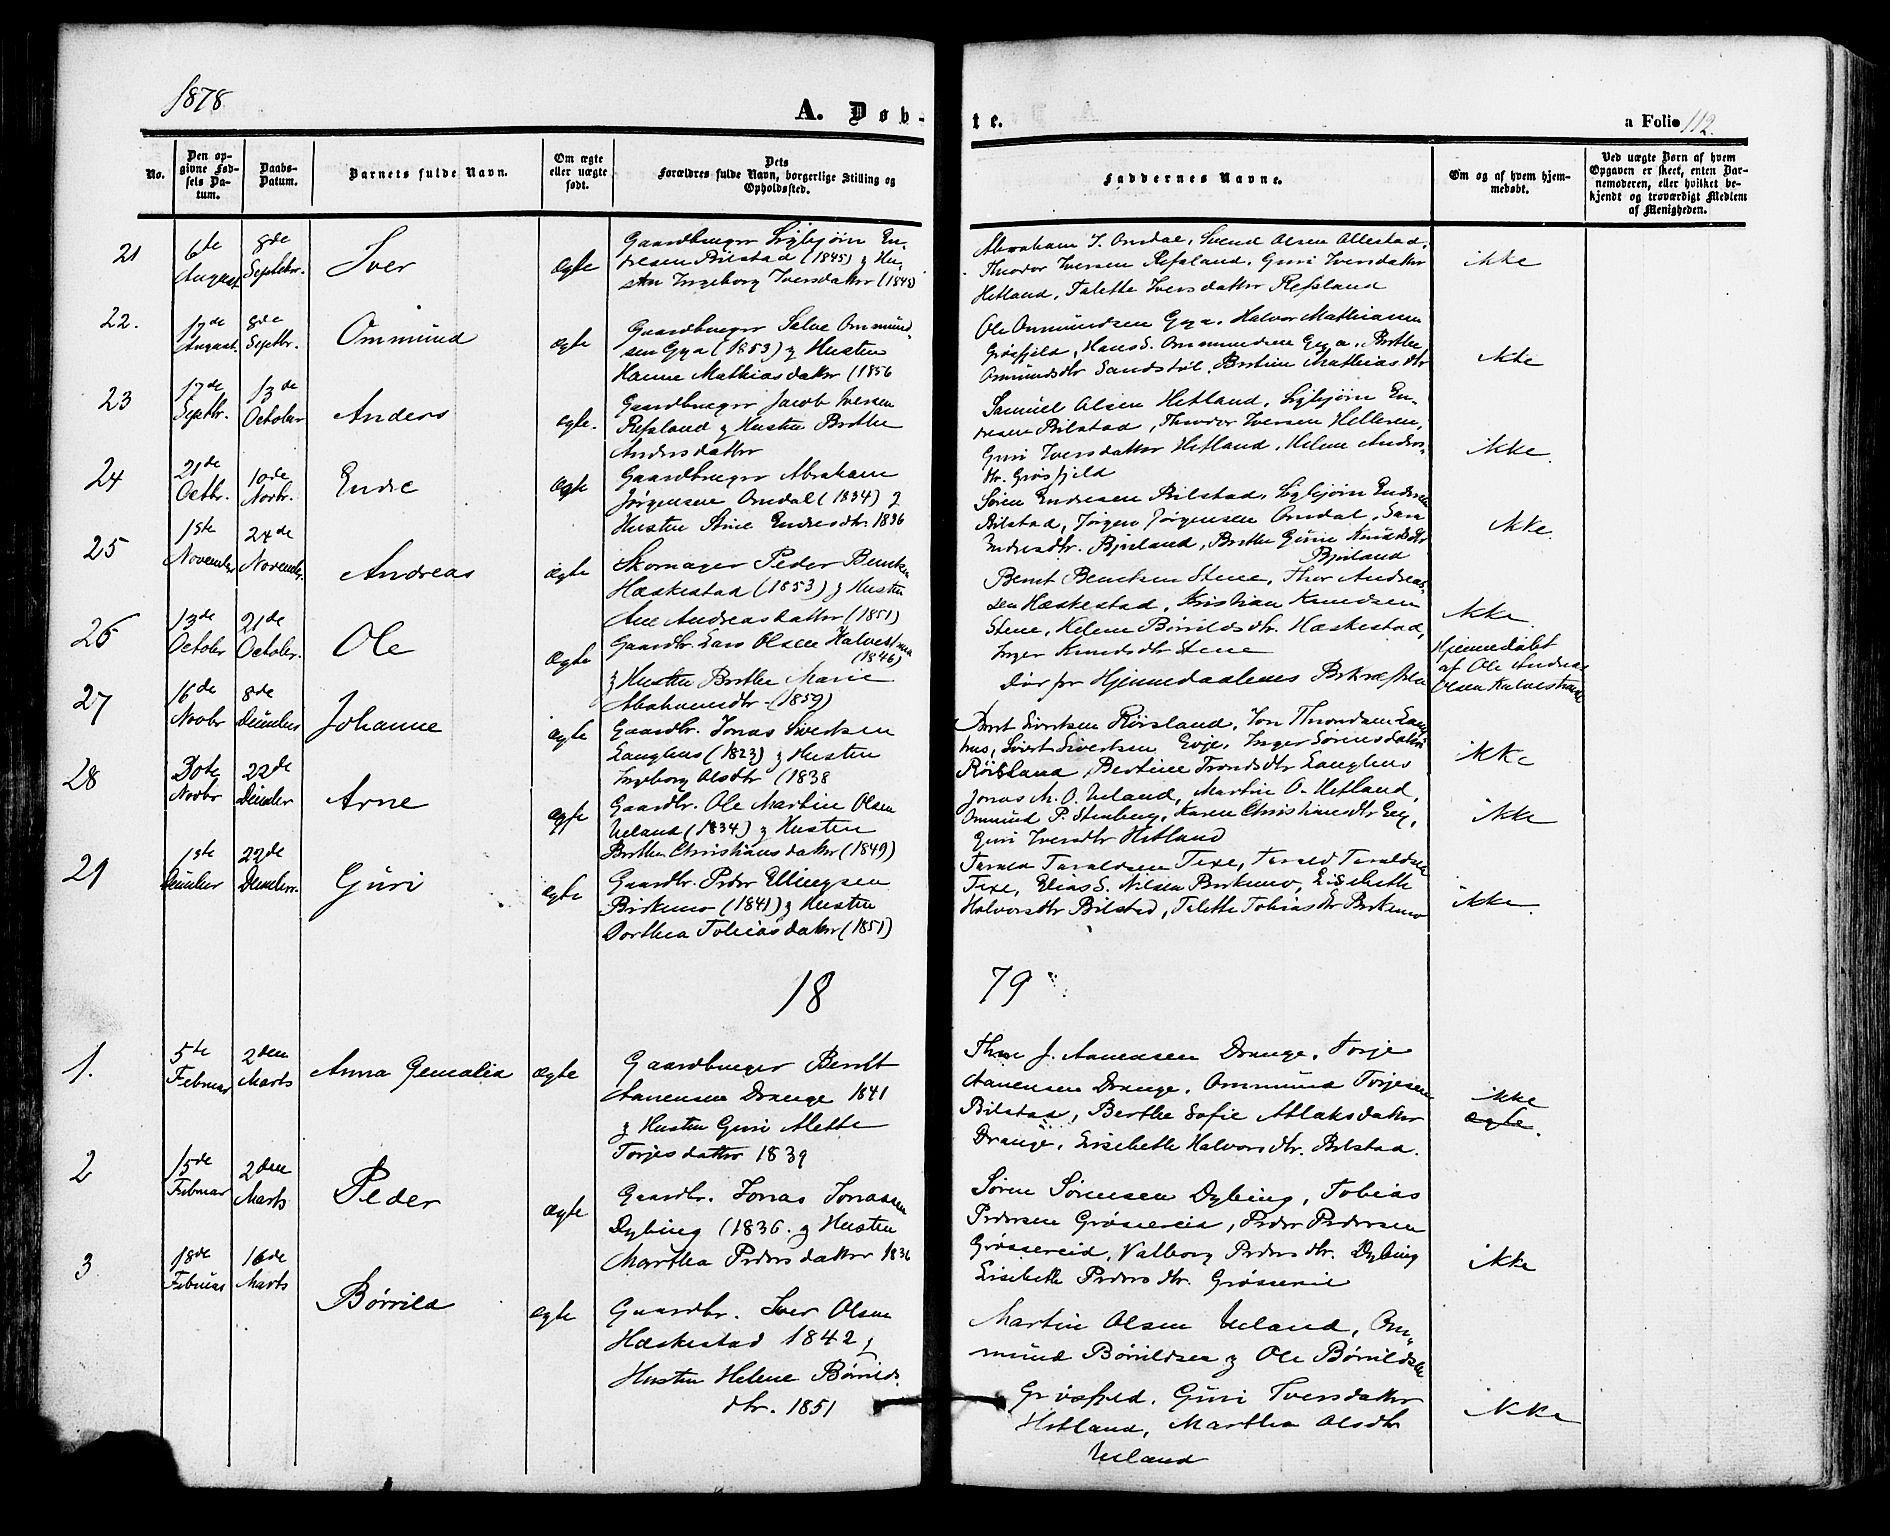 1878
A. Døb-
te.
a Folio 112.
No.
Den op-
givne Fød-
sels Da-
tum.
Daabs-
Datum.
Barnets fulde Navn.
Om ægte
eller uægte
født.
Dets
Forældres fulde Navn, borgerlige Stilling og
Opholdssted.
Faddernes Navne.
Om og af hvem hjem-
medøbt.
Ved uægte Børn af hvem
Opgaven er skeet, enten Bar-
nemoderen, eller hvilket be-
kjendt og troværdigt Medlem
af Menigheden.
21
6te
August
8de
Septbr.
Iver
ægte
Gaardbruger Sigbjørn En-
dresen Bilstad (1845) g Hu-
stru Ingeborg Iversdatter (1848)
Abraham J. Omdal, Svend Olsen Ollestad,
Theodor Iversen Refsland, Guri Iversdatter
Hetland, Talette Iversdatter Refsland
ikke
22.
17de
August.
8de
Septbr.
Ommund
ægte
Gaardbruger Salve Ommund-
sen Gya (1853) g Hustru
Hanne Mathiasdatter (1856
Ole Ommundsen Gya, Halvor Mathiasen
Grøsfjeld, Hans S. Ommundsen Gya, Berthe
Ommundsdtr Sandstøl, Bertine Mathiasdtr
ikke
23
17de
Septbr.
13de
October
Anders
ægte.
Gaardbruger Jacob Iversen
Refsland g Hustru Berthe
Andersdatter
Samuel Olsen Hetland, Sigbjørn En-
dresen Bilstad, Theodor Iversen Helleren,
Guri Iversdatter Hetland, Helene Anders-
dtr. Grøsfjeld
ikke.
24
21de
Octbr.
10de
Novbr.
Endre
ægte
Gaardbruger Abraham
Jørgensen Omdal (1834) g
Hustru Stine Endresdtr. 1836
Søren Endresen Bilstad, Sigbjørn Endresen
Bilstad, Jørgen Jørgensen Omdal, Sara
Endresdtr. Bjuland, Berthe Gurine Knudsdtr
Bjuland
ikke.
25
1ste
November
24de
November.
Andreas
ægte
Skomager Peder Bentsen
Hæskestad (1853) g Hustru
Ane Andreasdatter (1851)
Bernt Berntsen Stene, Thor Andreas-
sen Hæskestad, Kristian Knudsen
Stene, Helene Børrildsdtr. Hæskestad,
Inger Knudsdtr Stene
ikke.
26
13de
October
21de
October.
Ole
ægte
Gaardbr. Lars Olsen Kalvestrøm
(1846)
g Hustru Berthe Marie
Abrahamsdtr - (1859)
Døv for Hjemmedaabens Bekræftelse
Hjemmedøbt
af Ole Andreas
Olsen Kalvestrøm
27
16de
Novbr
8de
December
Johanne
ægte
Gaardbr. Jonas Sivertsen
Langhus (1823) g Hustru
Ingeborg Olsdtr (1838
Bernt Sivertsen Røisland, Jon Throndsen Lang-
hus, Sivert Sivertsen Evje, Inger Sørensdatter
Røisland, Bertine Trondsdtr Langhus
ikke
28
30te
Novbr
22de
December
Arne
ægte
Gaardbr. Ole Martin Olsen
Ueland (1834) g Hustru
Berthe Christiansdatter (1849)
Jonas M. O. Ueland, Martin O. Hetland,
Ommund P. Stenberg, Karen Christiansdtr Eeg,
Guri Iversdtr Hetland
ikke
29
1ste
December
22de
December.
Guri
ægte
Gaardbr. Peder Ellingsen
Birkemo (1841) g Hustru
Dorthea Tobiasdatter (1851)
Tarald Taraldsen Texe, Tarald Taraldsen
Texe, Elias S. Nilsen Birkemo, Lisebethe
Halvorsdtr Bilstad, Talette Tobiasdtr Birkemo
ikke.
18
79
1.
5te
Februar
2den
Marts
Anna Gemalia
ægte
Gaardbruger Berndt
Aanensen Drange 1841
g Hustru Guri Alette
Torjesdatter 1839
Thore J. Aanensen Drange, Torje
Aanensen Drange, Ommund Torjesen
Bilstad, Berthe Sofie Atlaksdatter
Drange, Lisebethe Halvorsdtr. Bilstad.
ikke
ægte.
2
15de
Februar
2den
Marts
Peder
ægte
Gaardbr. Jonas Jonassen
Dybing (1836. g Hustru
Marthea Pedersdatter 1836
Søren Sørensen Dybing, Tobias
Pedersen Grøssereid, Peder Pedersen
Grøssereid, Valborg Pedersdtr. Dybing
Lisebeth Pedersdtr. Grøssereid
ikke
3
18de
Februar
16de
Marts
Børrild
ægte
Gaardbr. Iver Olsen
Hæskestad 1842 g
Hustru Helene Børrilds-
dtr. 1851
Martin Olsen Ueland, Om-
mund Børrildsen g Ole Børrildsen
Grøsfjeld, Guri Iversdatter
Hetland, Marthea Olsdtr
Ueland
ikke